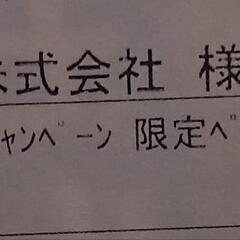 株式会社 様
ャンペーン 限定ペ